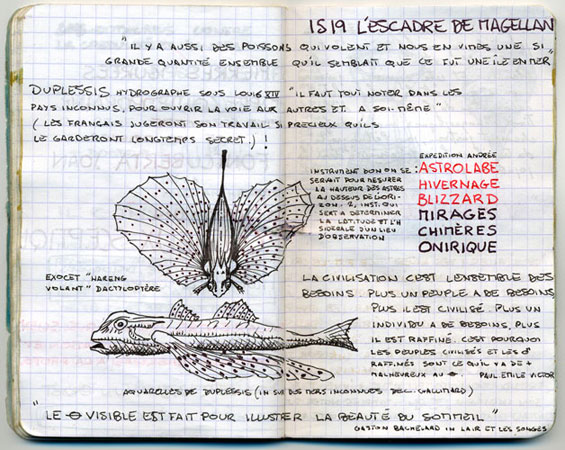 1519 L'ESCADRE DE MAGELLAN
"IL Y A AUSSI DES POISSONS QUI VOLENT ET NOUS EN VIMES UNE SI
GRANDE QUANTITÉ ENSEMBLE QU'IL SEMBLAIT QUE CE FUT UNE ÎLE EN MER"
DUPLESSIS HYDROGRAPHE SOUS LOUIS XIV "IL FAUT TOUT NOTER DANS LES
PAYS INCONNUS, POUR OUVRIR LA VOIE AUX AUTRES ET A SOI-MÊME"
(LES FRANÇAIS JUGERONT SON TRAVAIL SI PRECIEUX QU'ILS
LE GARDERONT LONGTEMPS SECRET.) !
EXPEDITION ANDRÉE
INSTRUMENT DON ON SE : ASTROLABE
SERVAIT POUR MESURER HIVERNAGE
LA HAUTEUR DES ASTRES BLIZZARD
AU DESSUS DE L'HORI- MIRAGES
ZON. 2, INST. QUI CHIMÈRES
SERT A DETERMINER ONIRIQUE
LA LATITUDE ET L'H
SIDERALE D'UN LIEU
D'OBSERVATION
EXOCET "HARENG
VOLANT" DACTYLOPTÈRE
LA CIVILISATION C'EST L'ENSEMBLE DES
BESOINS. PLUS UN PEUPLE A DE BESOINS
PLUS IL EST CIVILISÉ. PLUS UN
INDIVIDU A DE BESOINS, PLUS
IL EST RAFFINÉ. C'EST POURQUOI
LES PEUPLES CIVILISÉS ET LES
RAFFINÉS SONT CE QU'IL Y A DE +
MALHEUREUX AU PAUL EMILE VICTOR
AQUARELLES DE DUPLESSIS (IN SUR DES MERS INCONNUES DEC. GALLIMARD)
"LE VISIBLE EST FAIT POUR ILLUSTRER LA BEAUTÉ DU SOMMEIL"
GASTON BACHELARD IN L'AIR ET LES SONGES